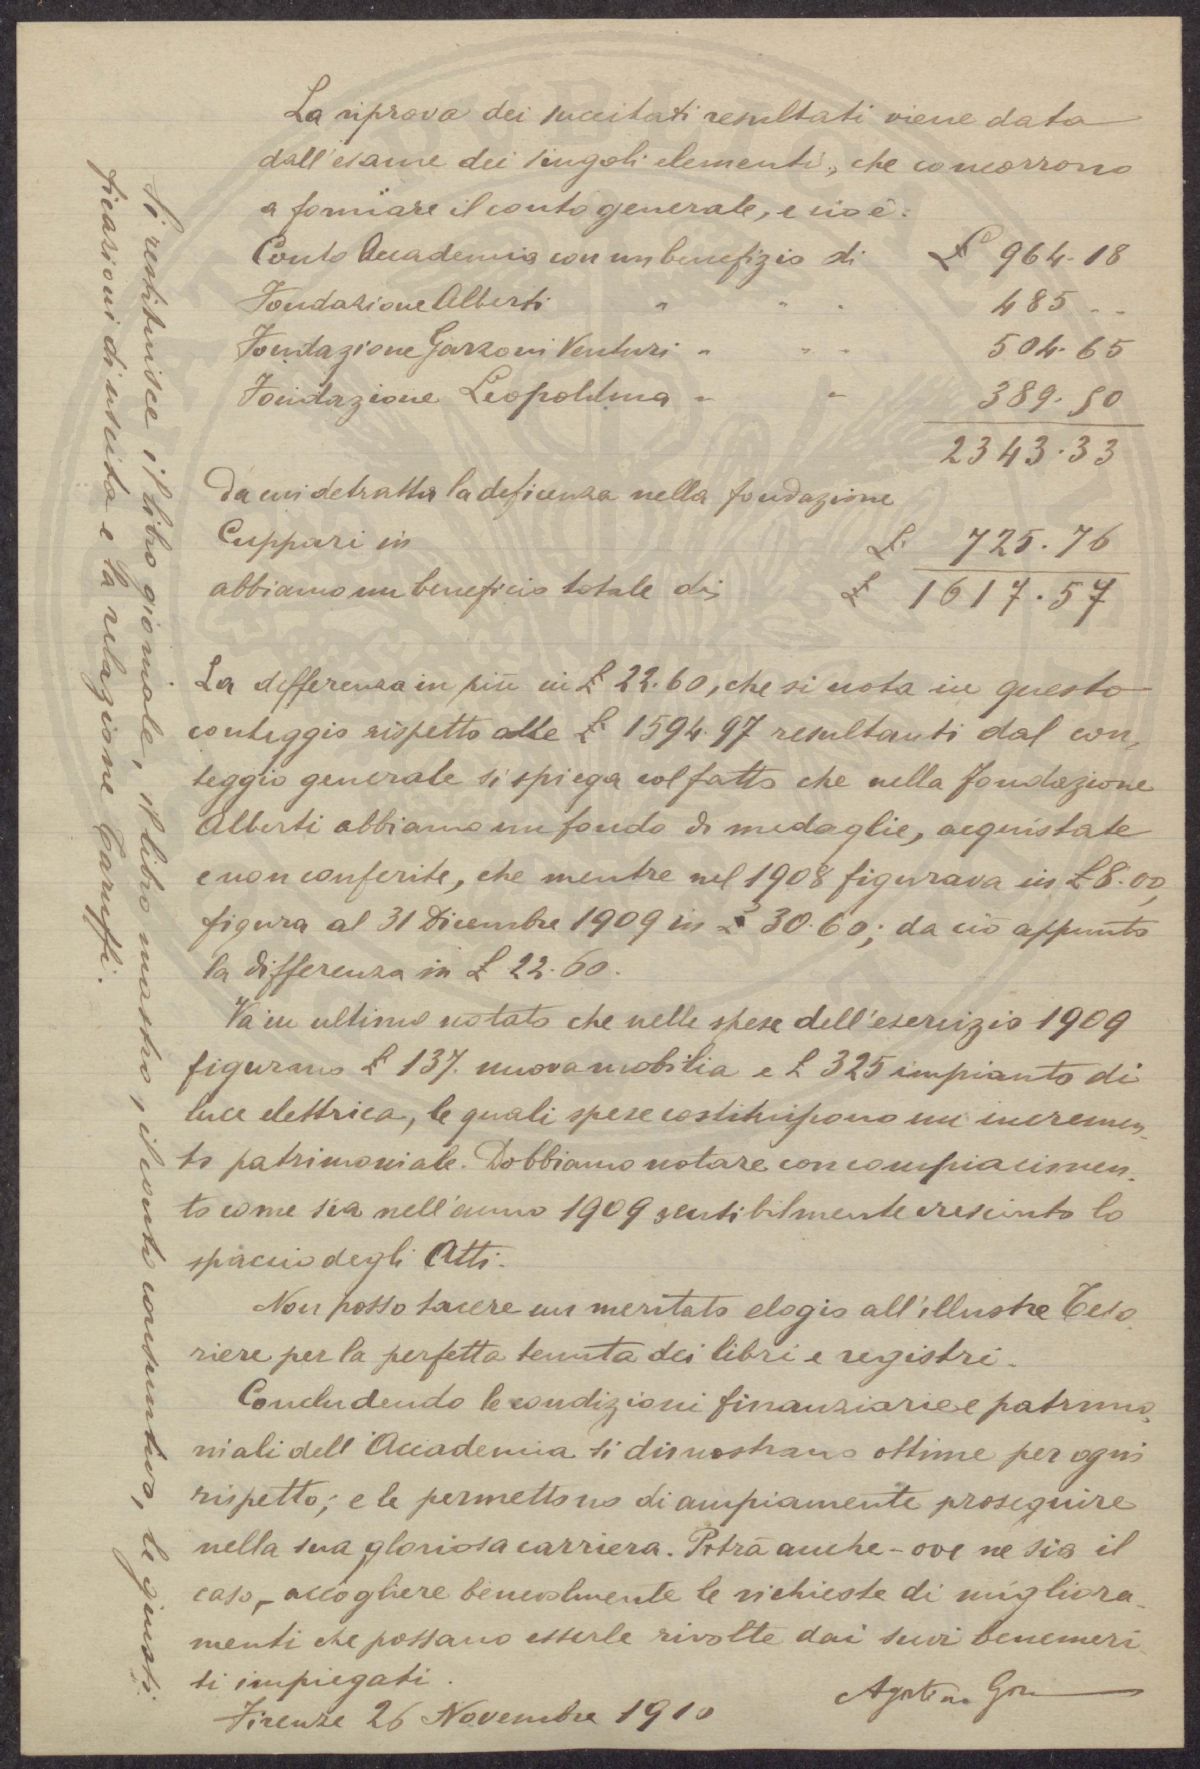 La riprova dei succitati resultati viene data
dall'esame dei singoli elementi, che concorrono
a formare il conto generale, e cioè:
Conto Accademia con un benefizio di £ 964.18
Fondazione Alberti " " " 485 ..
Fondazione Garzoni Venturi " " " 504.65
Fondazione Leopoldina " " 389.50
2343.33
Da cui detratta la deficenza nella fondazione
Cuppari in £. 725.76
abbiamo un beneficio totale di £ 1617.57
La differenza in più in £ 22.60, che si nota in questo
conteggio rispetto alle £ 1594.97 resultanti dal con-
teggio generale si spiega col fatto che nella Fondazione
Alberti abbiamo un fondo di medaglie, acquistate
e non conferite, che mentre nel 1908 figurava in £ 8.00,
figura al 31 Dicembre 1909 in £ 30.60; da ciò appunto
la differenza in £ 22.60.
Va in ultimo notato che nelle spese dell'esercizio 1909
figurano £ 137. nuova mobilia e £ 325 impianto di
luce elettrica, le quali spese costituiscono un incremen-
to patrimoniale. Dobbiamo notare con compiacimen-
to come sia nell'anno 1909 sensibilmente cresciuto lo
spaccio degli Atti.
Non posso tacere un meritato elogio all'illustre Teso-
riere per la perfetta tenuta dei libri e registri.
Concludendo le condizioni finanziarie e patrimo-
niali dell'Accademia si dimostrano ottime per ogni
rispetto; e le permettono di ampiamente proseguire
nella sua gloriosa carriera. Potrà anche - ove ne sia il
caso, accogliere benevolmente le richieste di migliora-
menti che possano esserle rivolte dai suoi benemeri-
ti impiegati.
Firenze 26 Novembre 1910
Si restituisce il libro giornale, il libro mastro, il conto consuntivo, le giusti-
ficazioni di uscita e la relazione Caruffi.